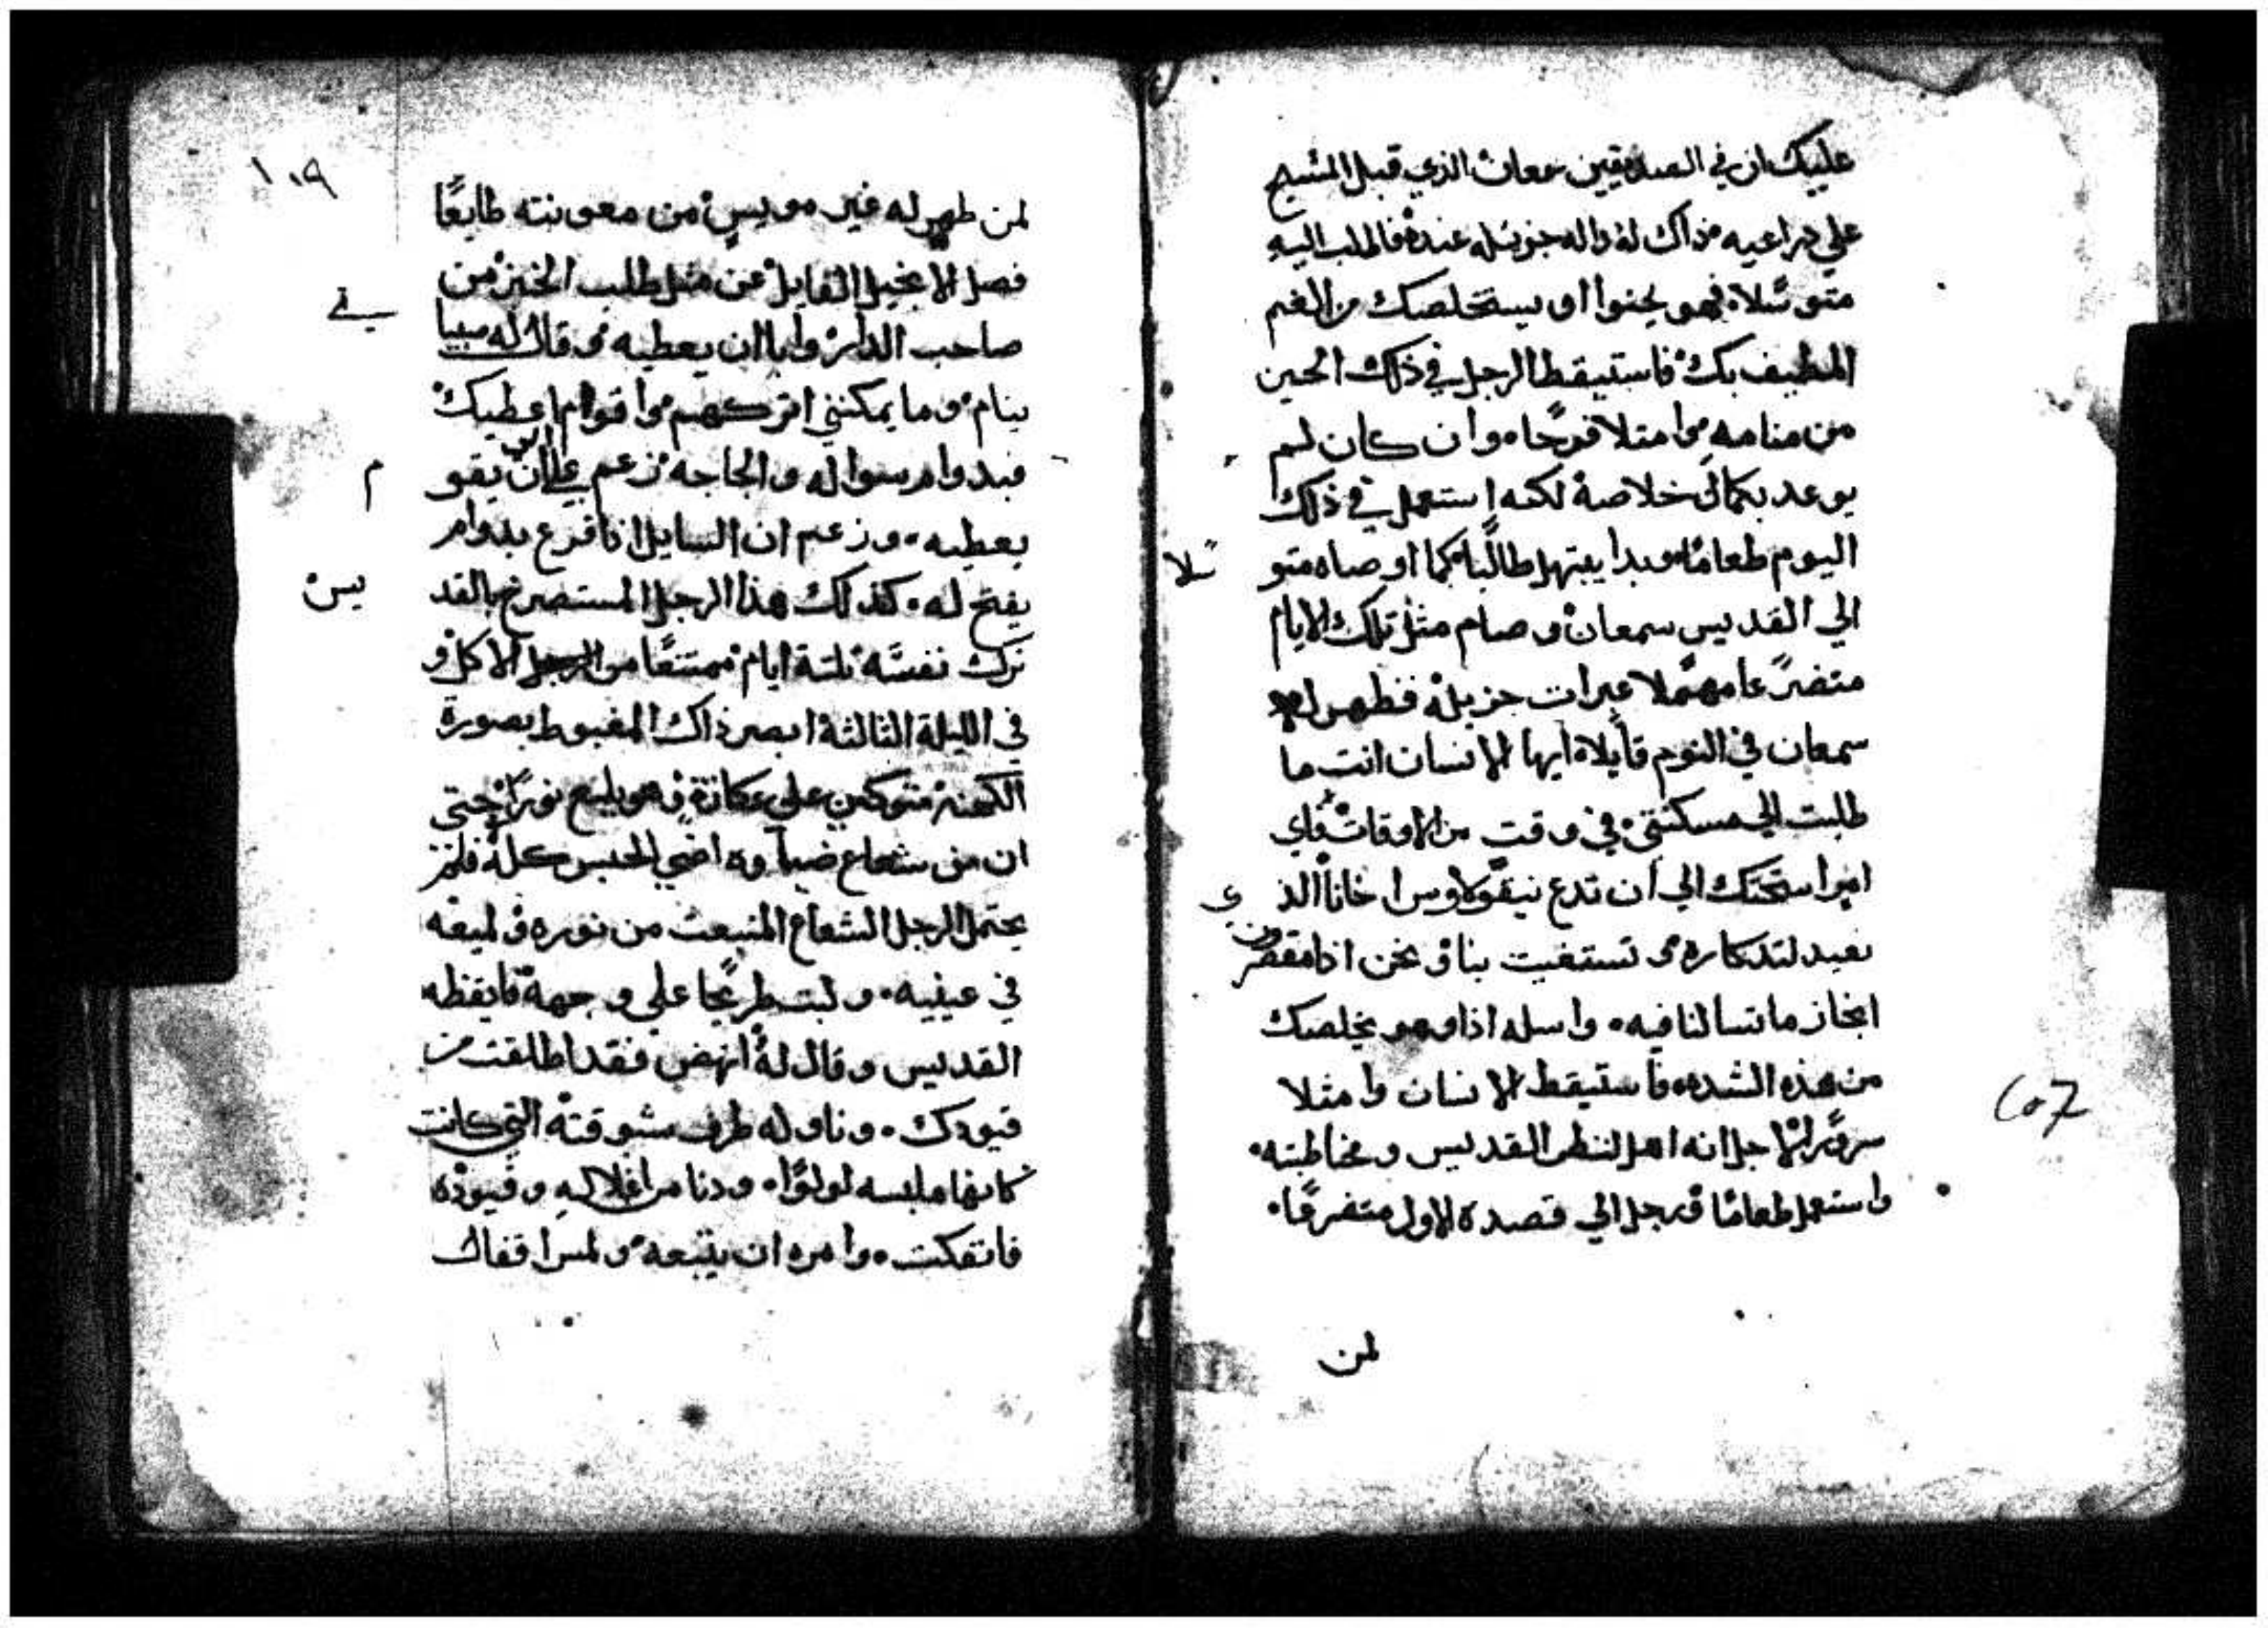 عليك ان في الصديقين سمعان الذي قبل المسيح
علي دراعيه فذاك له داله جزيله عنده فاطلب اليه
متوسلا فهو يحنوا او يستخلصك من الغم
المطيف بك فاستيقط الرجل في ذلك الحين
من منامه وامتلا فرحا وان كان لم
يوعد بكمال خلاصة لكنه استعمل في ذلك
اليوم طعاما وبدا يبتهل طالبا كما اوصاه متو
سلا
الي القديس سمعان وصام مثل تلك الايام
متضرعا مهملا عبرات جزيلة فظهر له
سمعان في النوم قايلا ايها الانسان انت ما
طلبت الي مسكنتي في وقت من الاوقات فاي
امر استحتك الي ان تدع نيقولاوس اخانا الذ
ي
نعيد لتدكاره و تستغيت بنا و نحن اذا مقصرين
انجاز ما تسالنا فيه واسله اذا وهو يخلصك
من هذه الشده فاستيقط الانسان وامثلا
سرورا لاجل انه اهل لنظر القديس ومخاطبته
واستعمل طعاما ورجل الي قصده الاول متضرعا
لمن
٢٥٦
١٠٩
لمن ظهر له غير مويس من معونته طايعا
فصل الانجيل القايل عن مثل طلب الخبز من
صاحب الدار وابا ان يعطيه وقال له صبيا
ني
ينام وما يمكنني اتركهم واقوم اعطيك
فبدوام سواله والحاجه زعم علي ان يقو
م
يعطيه وزعم ان السايل اذا قرع بدوام
يفتح له كذلك هذا الرجل المستصرخ بالقد
يس
ترك نفسه تلتة ايام ممتنعا من الاكل و
في الليلة الثالثة ابصر ذاك المغبوط بصورة
الكهنة متوكي علي عكازة وهو يلمع نورا حتي
ان من شعاع ضياوه اضي الحبس كله فلم
يحتمل الرجل الشعاع المنبعث من نوره و لميعه
في عينيه ولبت طريحا علي وجهة فايقظه
القديس وقال له انهض فقد اطلقت من
قيودك وناوله طرف مشوقته التي كانت
كانها ملبسه لولوا ودنا من اغلاله وقيوده
فانفكت وامره ان يتبعه ولمرافقاك